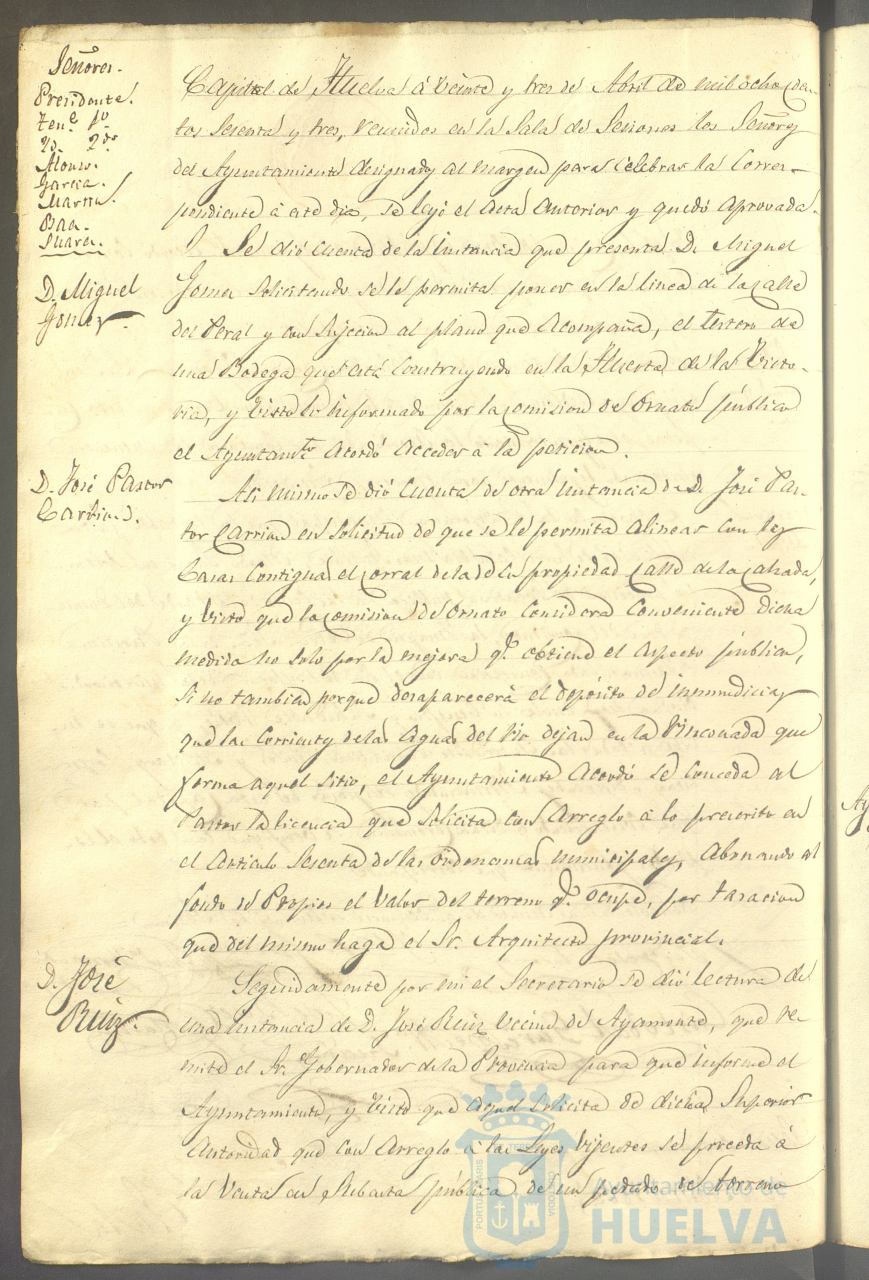 Señores.
Presidente.
Tene. 1º
Yd. 2do
Alonso.
Garcia.
Martin.
Baa.
Suarez.
Capital de Huelva á veinte y tres de Abril de mil ochocien-
tos sesenta y tres, reunidos en la Sala de Sesiones los Señores
del Ayuntamiento designados al margen para celebrar la corres-
pondiente á este dia, se leyó el acta anterior y quedó aprovada.
D. Miguel
Gomez.
Se dió cuenta de la instancia que presenta D. Miguel
Gomez solicitando se le permita poner en la linea de la calle
del Peral y con sujecion al plano que acompaña, el testero de
una Bodega que está construyendo en la Huerta de la Victo-
ria, y visto lo informado por la comision de Ornato público
el Ayuntamto. acordó acceder á la peticion.
D. José Pastor
Carrion.
Asi mismo se dió cuenta de otra instancia de D. José Pas-
tor Carrion en solicitud de que se le permita alinear con las
casas contiguas el corral de la de su propiedad calle de la Calzada,
y visto que la comision de Ornato considera conveniente dicha
medida no solo por la mejora qe. obtiene el aspecto público,
si no tambien porque desaparecerá el depósito de inmundicias
que las corrientes de las aguas del rio dejan en la rinconada que
forma aquel sitio, el Ayuntamiento acordó se conceda al
Pastor la licencia que solicita con arreglo á lo prescrito en
el articulo sesenta de las ordenanzas municipales, abonando al
fondo de Propios el valor del terreno qe. ocupe, por tasacion
que del mismo haga el Sr. Arquitecto provincial.
D. José
Ruiz.
Seguidamente por mi el Secretario se dió lectura de
una instancia de D. José Ruiz vecino de Ayamonte, que re-
mite el Sr. Gobernador de la Provincia para que informe el
Ayuntamiento, y visto que aquel solicita de dicha Superior
Autoridad que con arreglo á las Leyes vijentes se proceda á
la venta en subasta pública de un pedazo de terreno
Ayuntamiento de
HUELVA
Ay